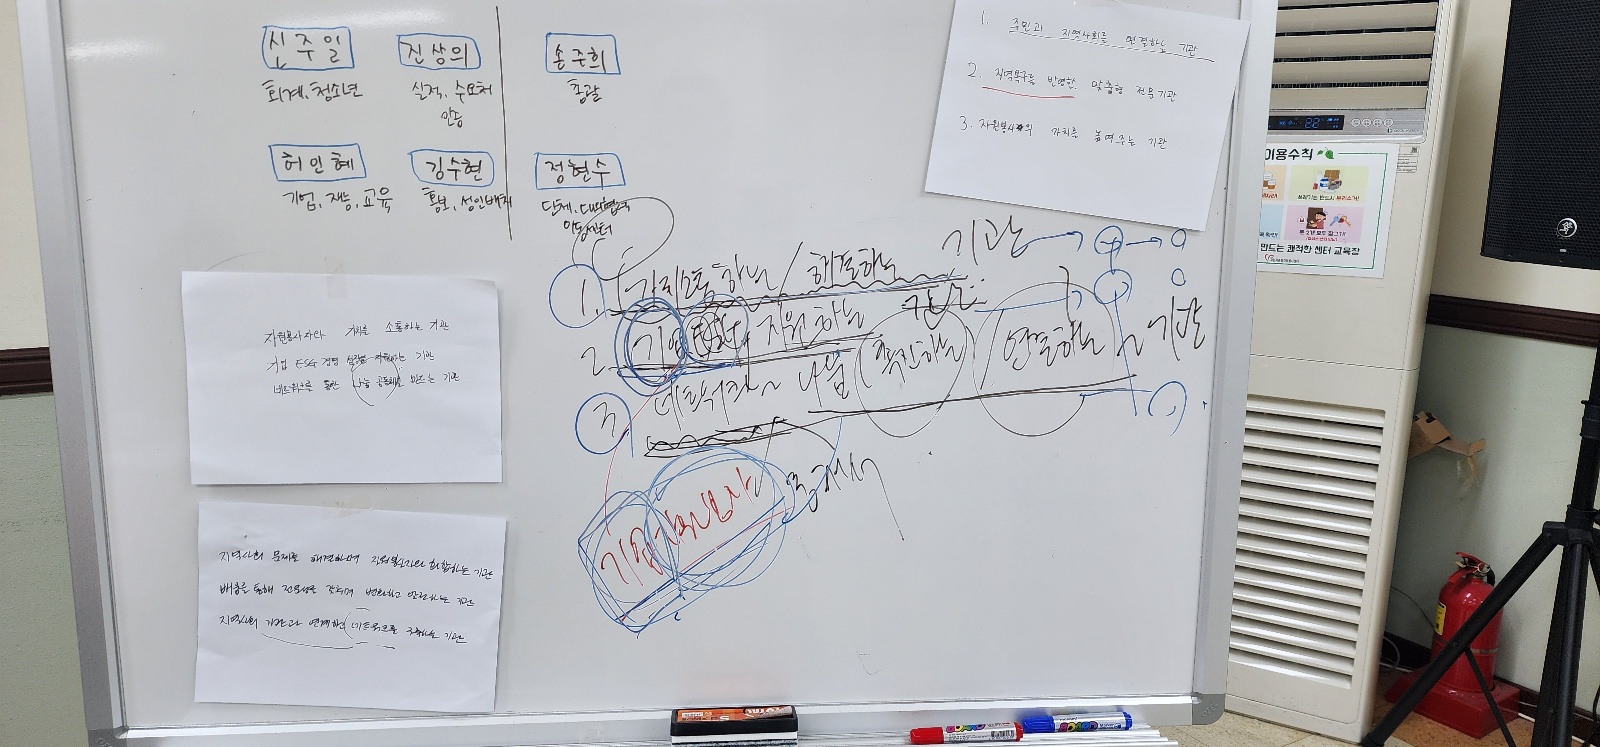 신주일
회계, 청소년
진상의
실적, 수요처
인증
손주희
총괄
허인혜
기업, 재능, 교육
김수현
홍보, 성인배치
정현수
단체, 대외협력
이동센터
1. 주민과 지역사회를 연결하는 기관
2. 지역욕구를 반영한 맞춤형 전문기관
3. 자원봉사의 가치를 높여주는 기관
1. 가치소통하는/해결하는 기관
2. 기업 지원하는
3. 네트워크 나눔 (촉진하는) (연결하는) 기관
기업 통해서
자원봉사자와 가치를 소통하는 기관
기업 ESG 경영 기관
네트워크를 통한 나눔 공동체를 만드는 기관
지역사회 문제를 해결하며 자원봉사자와 화합하는 기관
배움을 통해 전문성을 갖추며 변화하고 기관
지역사회 기관과 연계한 네트워크를 구축하는 기관
22
이용수칙
만드는 쾌적한 센터 교육장